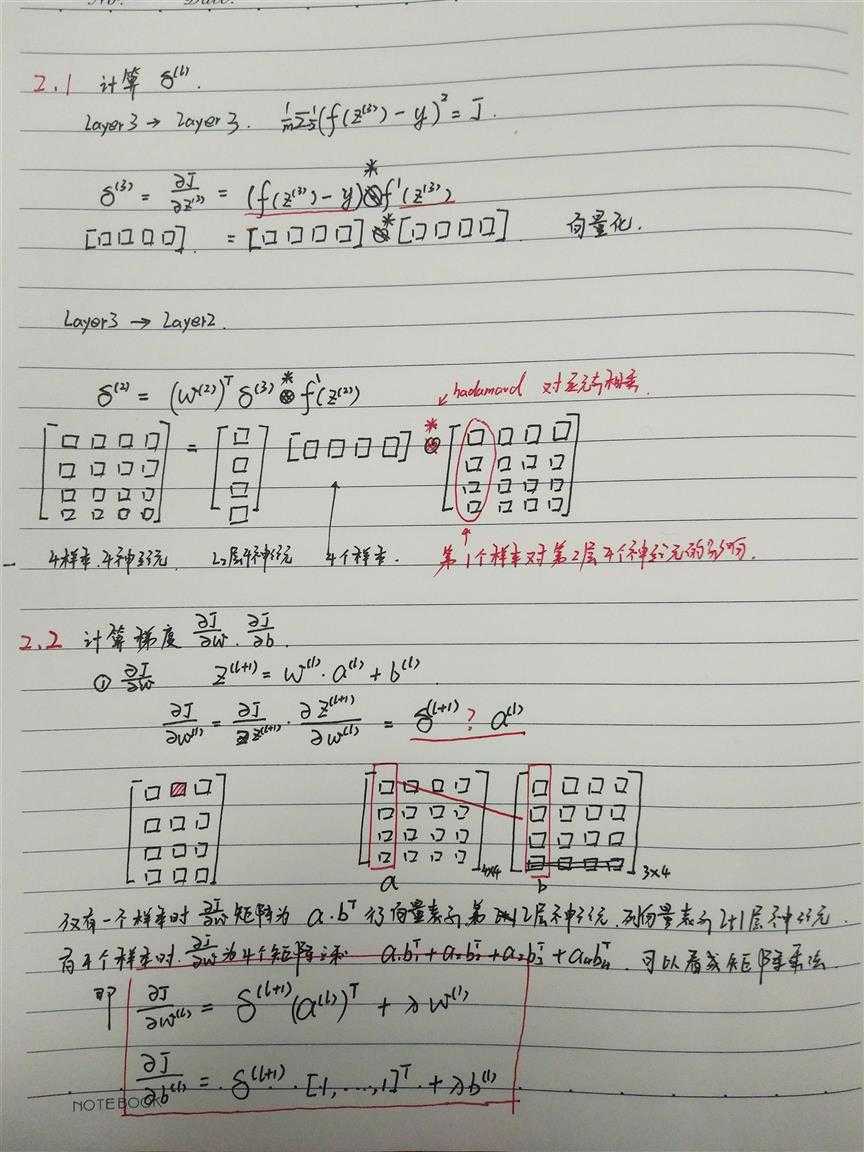 No. Date.
2.1 计算 δ⁽ˡ⁾.
Layer3 → Layer3. 1/m Σ ½(f(z⁽³⁾) − y)² = J.
δ⁽³⁾ = ∂J/∂z⁽³⁾ = (f(z⁽³⁾) − y) * f'(z⁽³⁾)
[□ □ □ □] = [□ □ □ □] * [□ □ □ □] 向量化.
Layer3 → Layer2.
δ⁽²⁾ = (W⁽²⁾)ᵀ δ⁽³⁾ * f'(z⁽²⁾)
↙ hadamard 对应元素相乘.
4样本.4神经元. L2层4神经元 4个样本. 第1个样本对第2层4个神经元的影响.
2.2 计算梯度 ∂J/∂w . ∂J/∂b.
① ∂J/∂w z⁽ˡ⁺¹⁾ = w⁽ˡ⁾ · a⁽ˡ⁾ + b⁽ˡ⁾
∂J/∂w⁽ˡ⁾ = ∂J/∂z⁽ˡ⁺¹⁾ · ∂z⁽ˡ⁺¹⁾/∂w⁽ˡ⁾ = δ⁽ˡ⁺¹⁾ ? a⁽ˡ⁾
4×4 3×4
a b
仅有一个样本时 ∂J/∂w 矩阵为 a·bᵀ 行向量表示第 l层神经元, 列向量表示l+1层神经元.
有4个样本时. ∂J/∂w 为4个矩阵之和 a₁b₁ᵀ + a₂b₂ᵀ + a₃b₃ᵀ + a₄b₄ᵀ. 可以看成矩阵乘法
即 ∂J/∂w⁽ˡ⁾ = δ⁽ˡ⁺¹⁾ (a⁽ˡ⁾)ᵀ + λw⁽ˡ⁾
∂J/∂b⁽ˡ⁾ = δ⁽ˡ⁺¹⁾ · [1, ..., 1]ᵀ + λb⁽ˡ⁾
NOTEBOOK